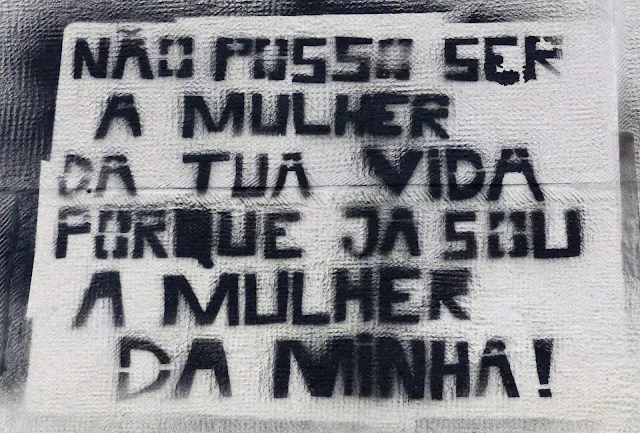 NÃO POSSO SER
A MULHER
DA TUA VIDA
PORQUE JA SOU
A MULHER
DA MINHA!